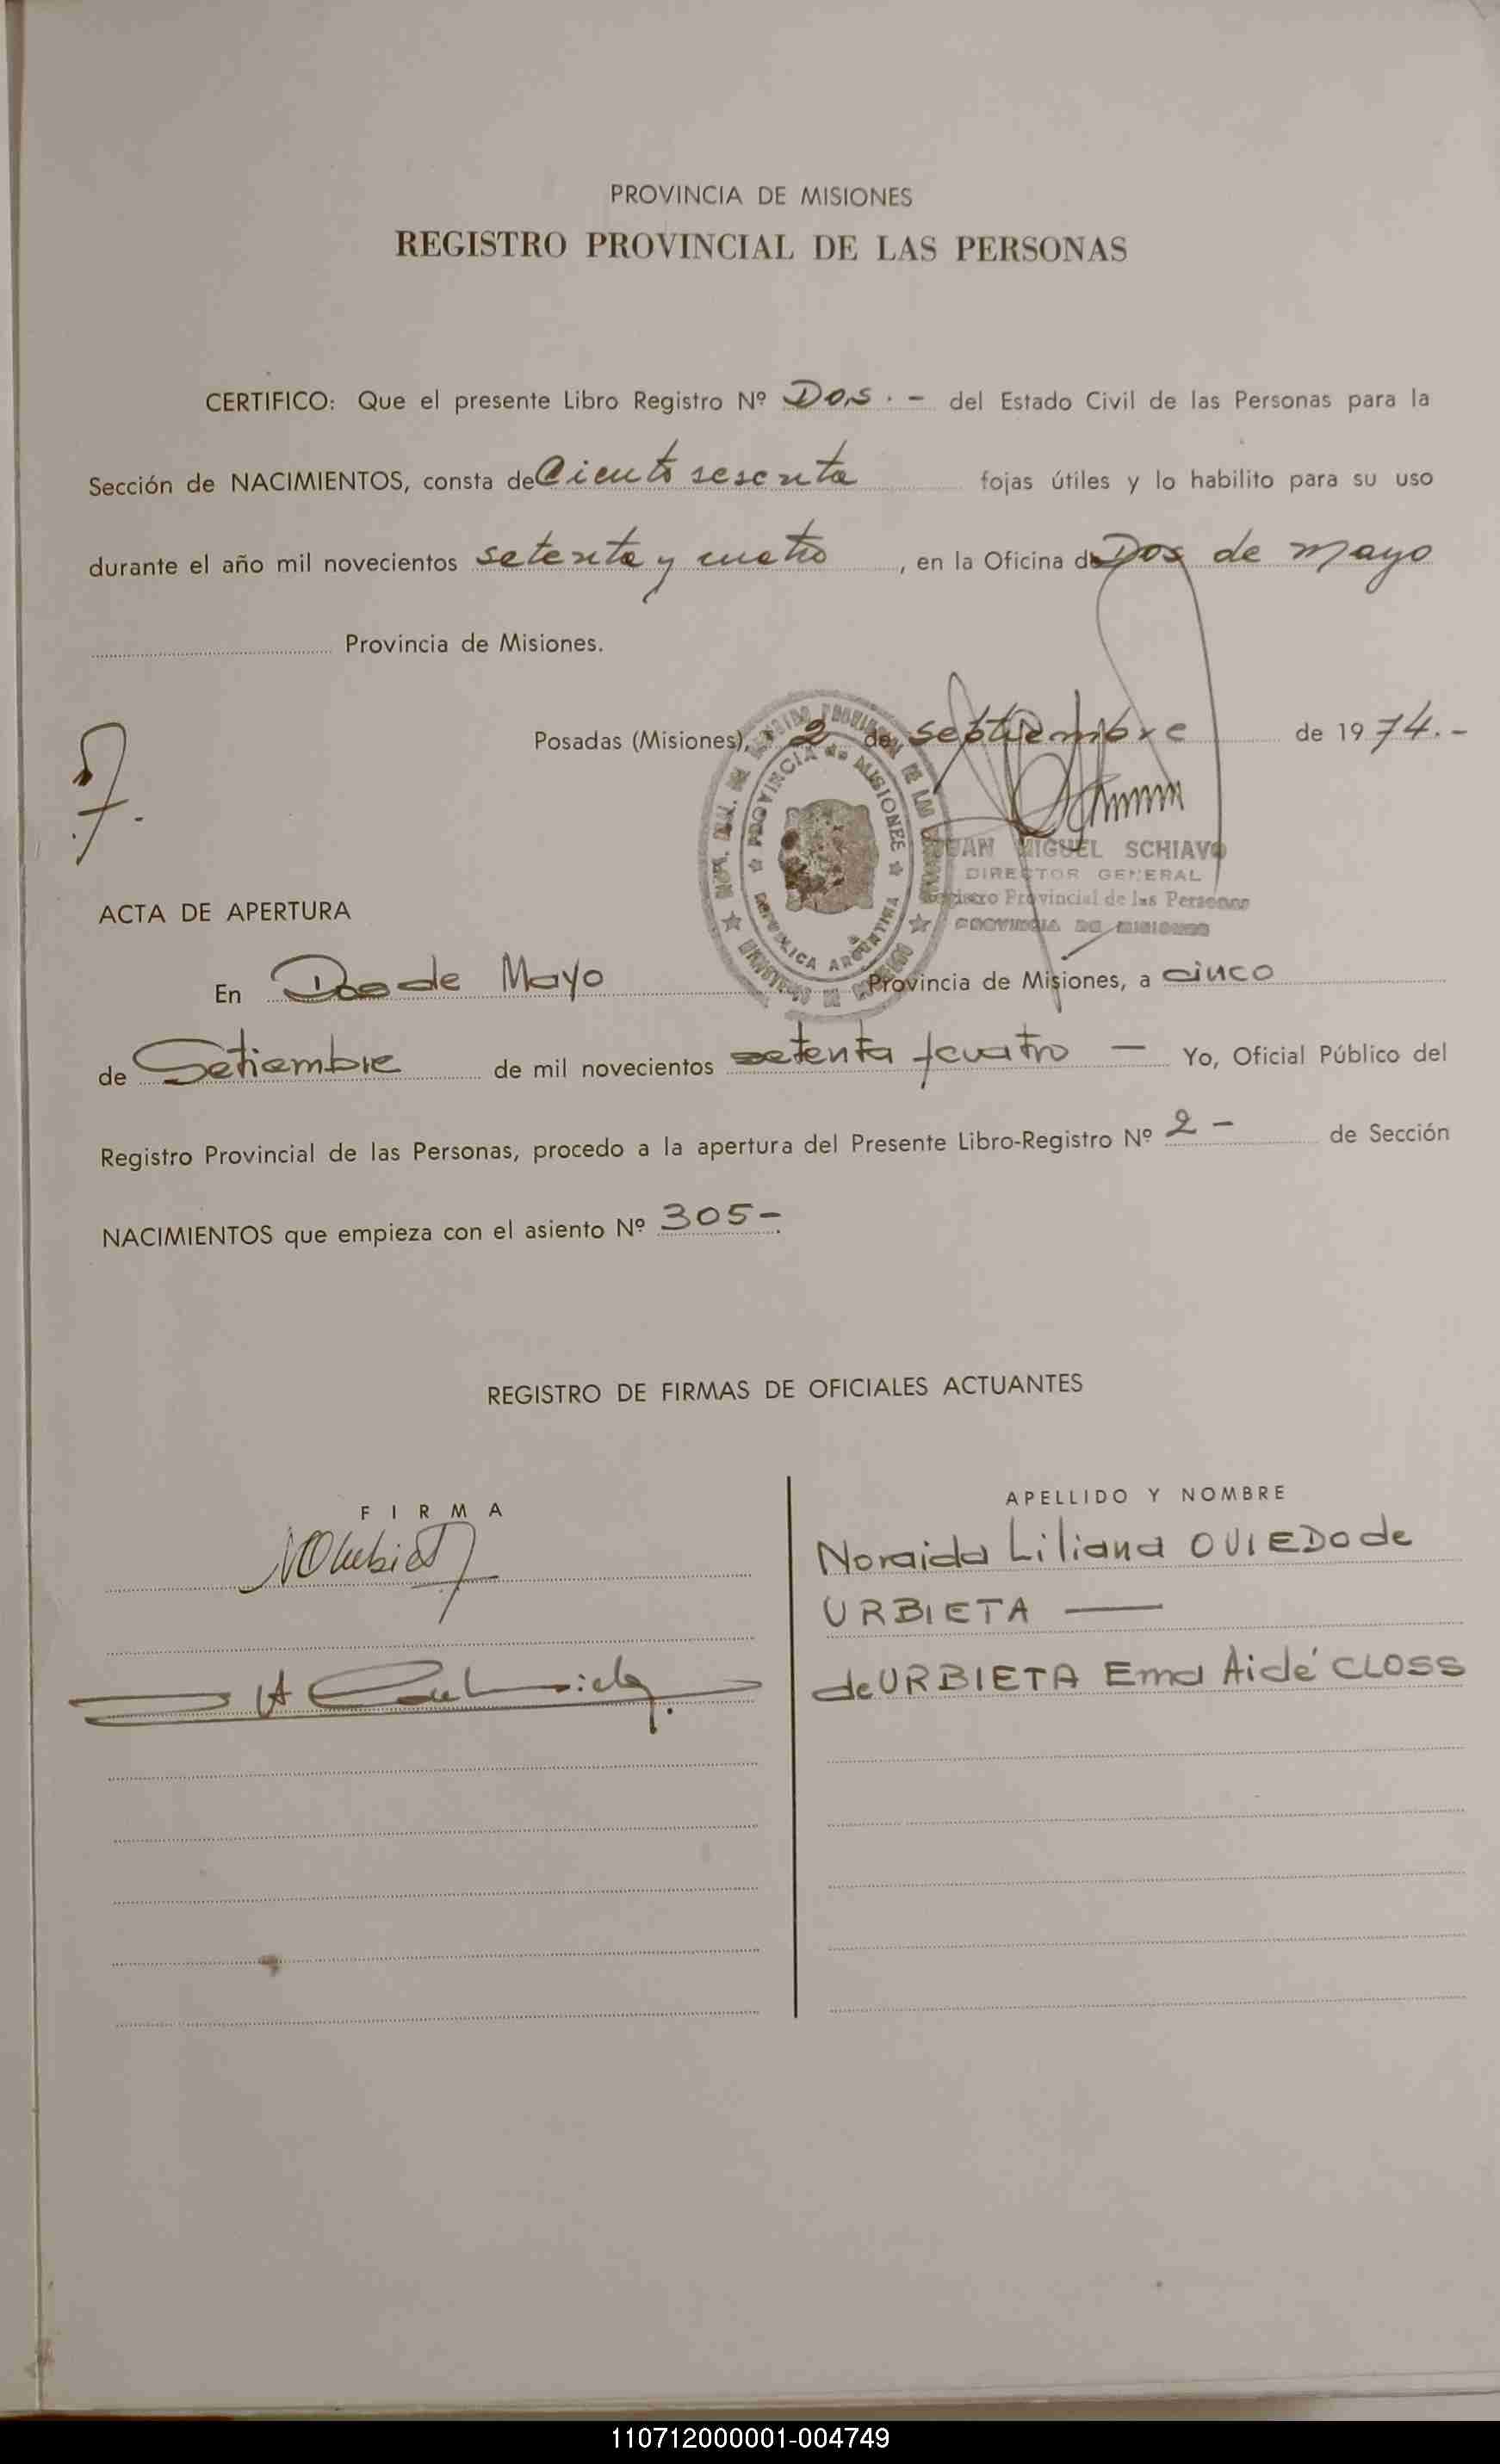 PROVINCIA DE MISIONES
REGISTRO PROVINCIAL DE LAS PERSONAS
CERTIFICO: Que el presente Libro Registro Nº Dos . - del Estado Civil de las Personas para la
Sección de NACIMIENTOS, consta de Ciento sesenta fojas útiles y lo habilito para su uso
durante el año mil novecientos setenta y cuatro, en la Oficina de Dos de mayo
Provincia de Misiones.
Posadas (Misiones), 2 de septiembre de 1974.-
PROVINCIA de MISIONES
REPUBLICA ARGENTINA
JUAN MIGUEL SCHIAVO
DIRECTOR GENERAL
Registro Provincial de las Personas
PROVINCIA DE MISIONES
ACTA DE APERTURA
En Dos de Mayo Provincia de Misiones, a cinco
de Setiembre de mil novecientos setenta y cuatro — Yo, Oficial Público del
Registro Provincial de las Personas, procedo a la apertura del Presente Libro-Registro Nº 2 - de Sección
NACIMIENTOS que empieza con el asiento Nº 305-
REGISTRO DE FIRMAS DE OFICIALES ACTUANTES
FIRMA
APELLIDO Y NOMBRE
Noraida Liliana OVIEDO de
URBIETA —
de URBIETA Ema Aidé CLOSS
110712000001-004749